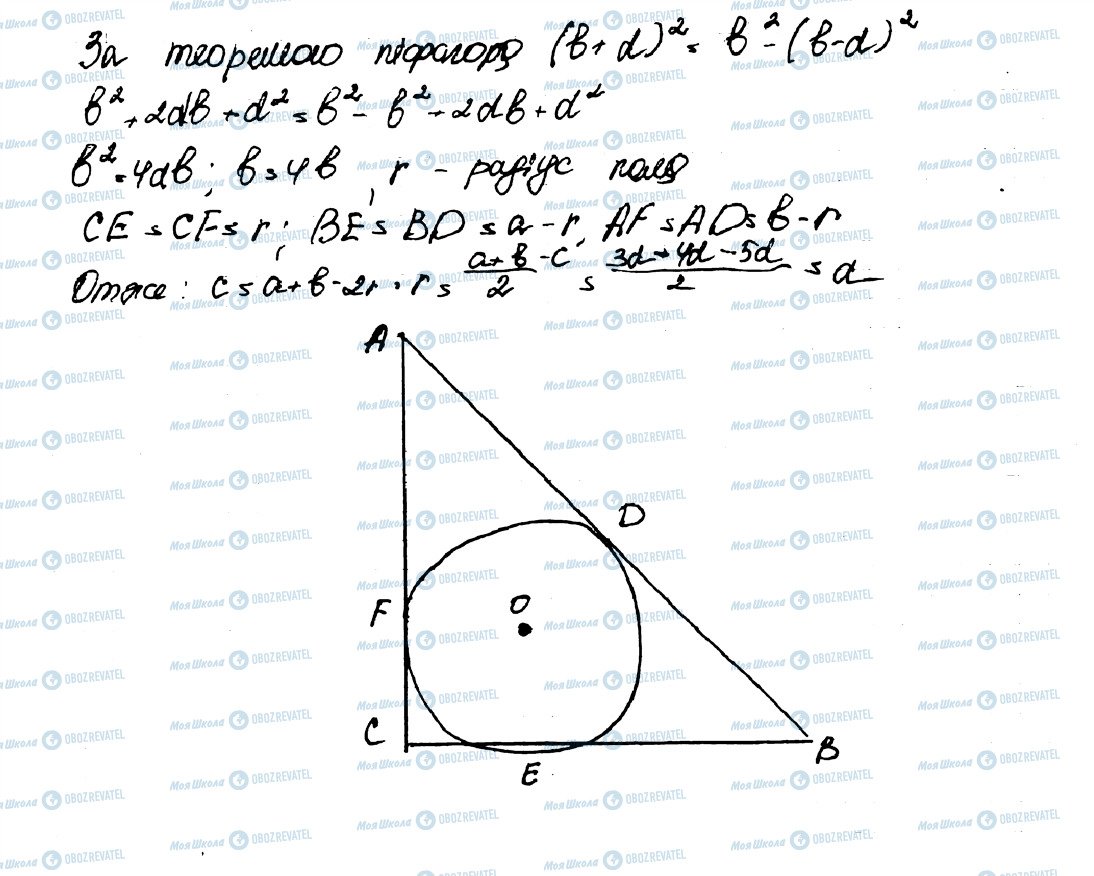 За теоремою піфагора (b + d)² = b² - (b - d)²
b² + 2db + d² = b² - b² + 2db + d²
b² = 4db; b = 4b, r - радіус кола
CE = CF = r; BE = BD = a - r, AF = AD = b - r
Отже: c = a + b - 2r, r = (a + b - c)/2 = (3d + 4d - 5d)/2 = d
A
D
F
O
C
B
E
МояШкола OBOZREVATEL